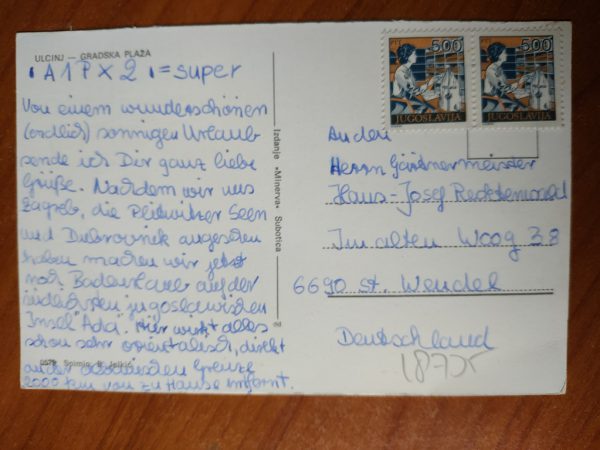 ULCINJ — GRADSKA PLAŽA
" A 1 P X 2 " = super
Von einem wunderschönen
(endlich) sonnigen Urlaub
sende ich Dir ganz liebe
Grüße. Nachdem wir uns
Zagreb, die Plitwitzer Seen
und Dubrovnik angesehen
haben machen wir jetzt
noch Badeurlaub auf der
südlichsten jugoslawischen
Insel "Ada". Hier wirkt alles
schon sehr orientalisch, direkt
an der albanischen Grenze
2000 km von zu Hause entfernt.
Snimio: B. Jelkić
Izdanje »Minerva« Subotica
PTT 5.00
JUGOSLAVIJA
PTT 5.00
JUGOSLAVIJA
An den
Herrn Gärtnermeister
Hans-Josef Recktenwald
Im alten Woog 38
6690 St. Wendel
Deutschland